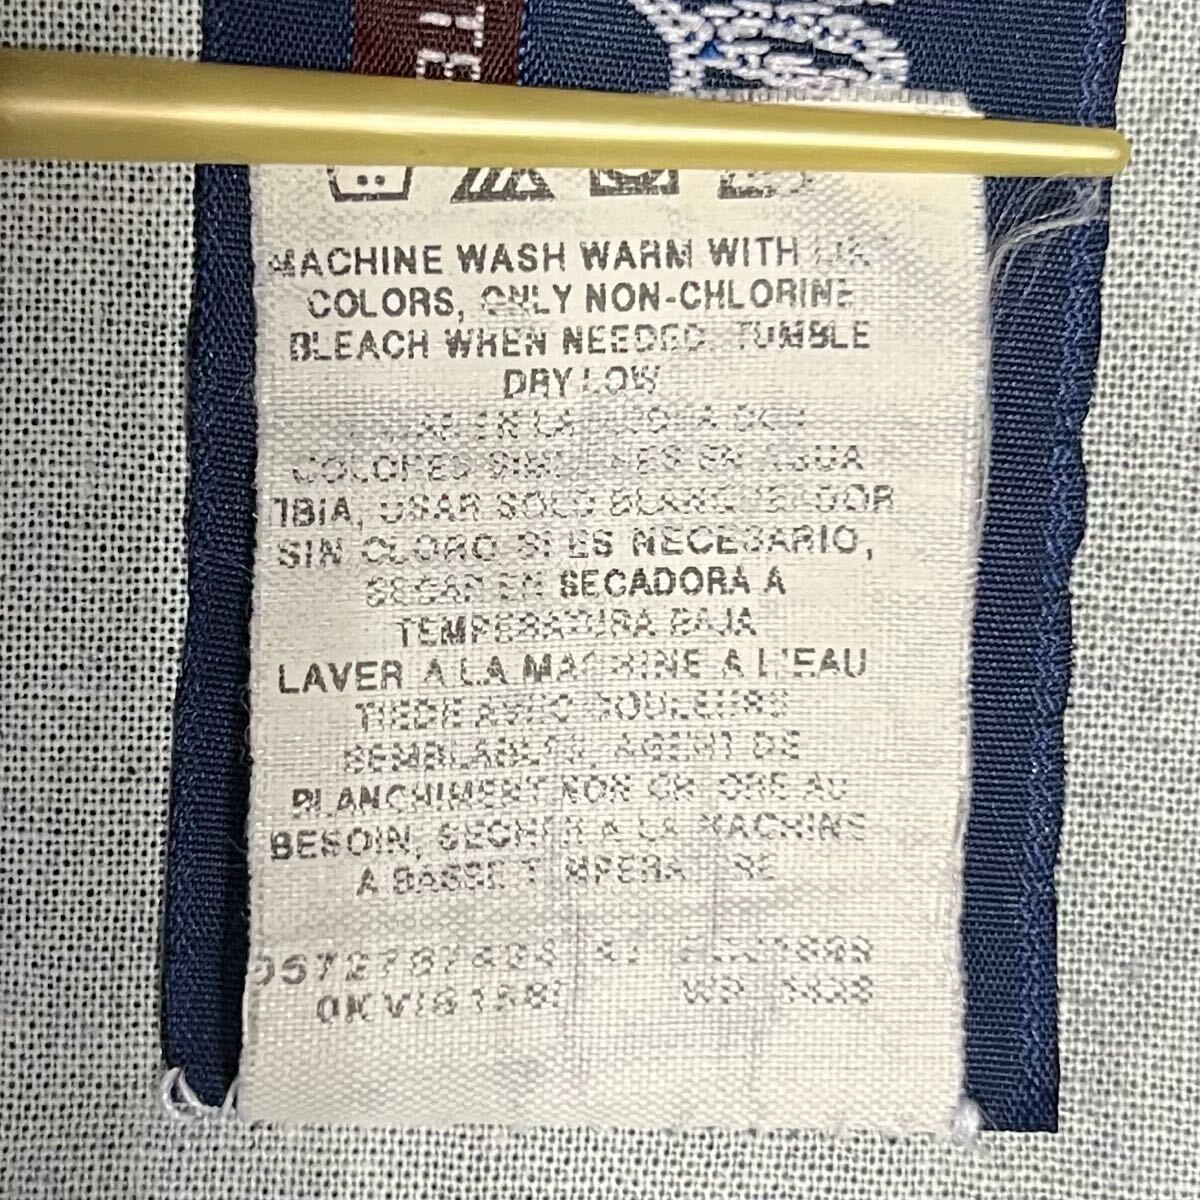 MACHINE WASH WARM WITH
COLORS, ONLY NON-CHLORINE
BLEACH WHEN NEEDED. TUMBLE
DRY LOW
EN LA
COLORES EN AGUA
TIBIA, USAR SOLO BLANQUEADOR
SIN CLORO SI ES NECESARIO,
SECAR EN SECADORA A
TEMPERATURA BAJA
LAVER A LA MACHINE A L'EAU
TIEDE AVEC COULEURS
SEMBLABLES, AGENT DE
BLANCHIMENT NON CHLORE AU
BESOIN, SECHER A LA MACHINE
A BASSE TEMPERATURE